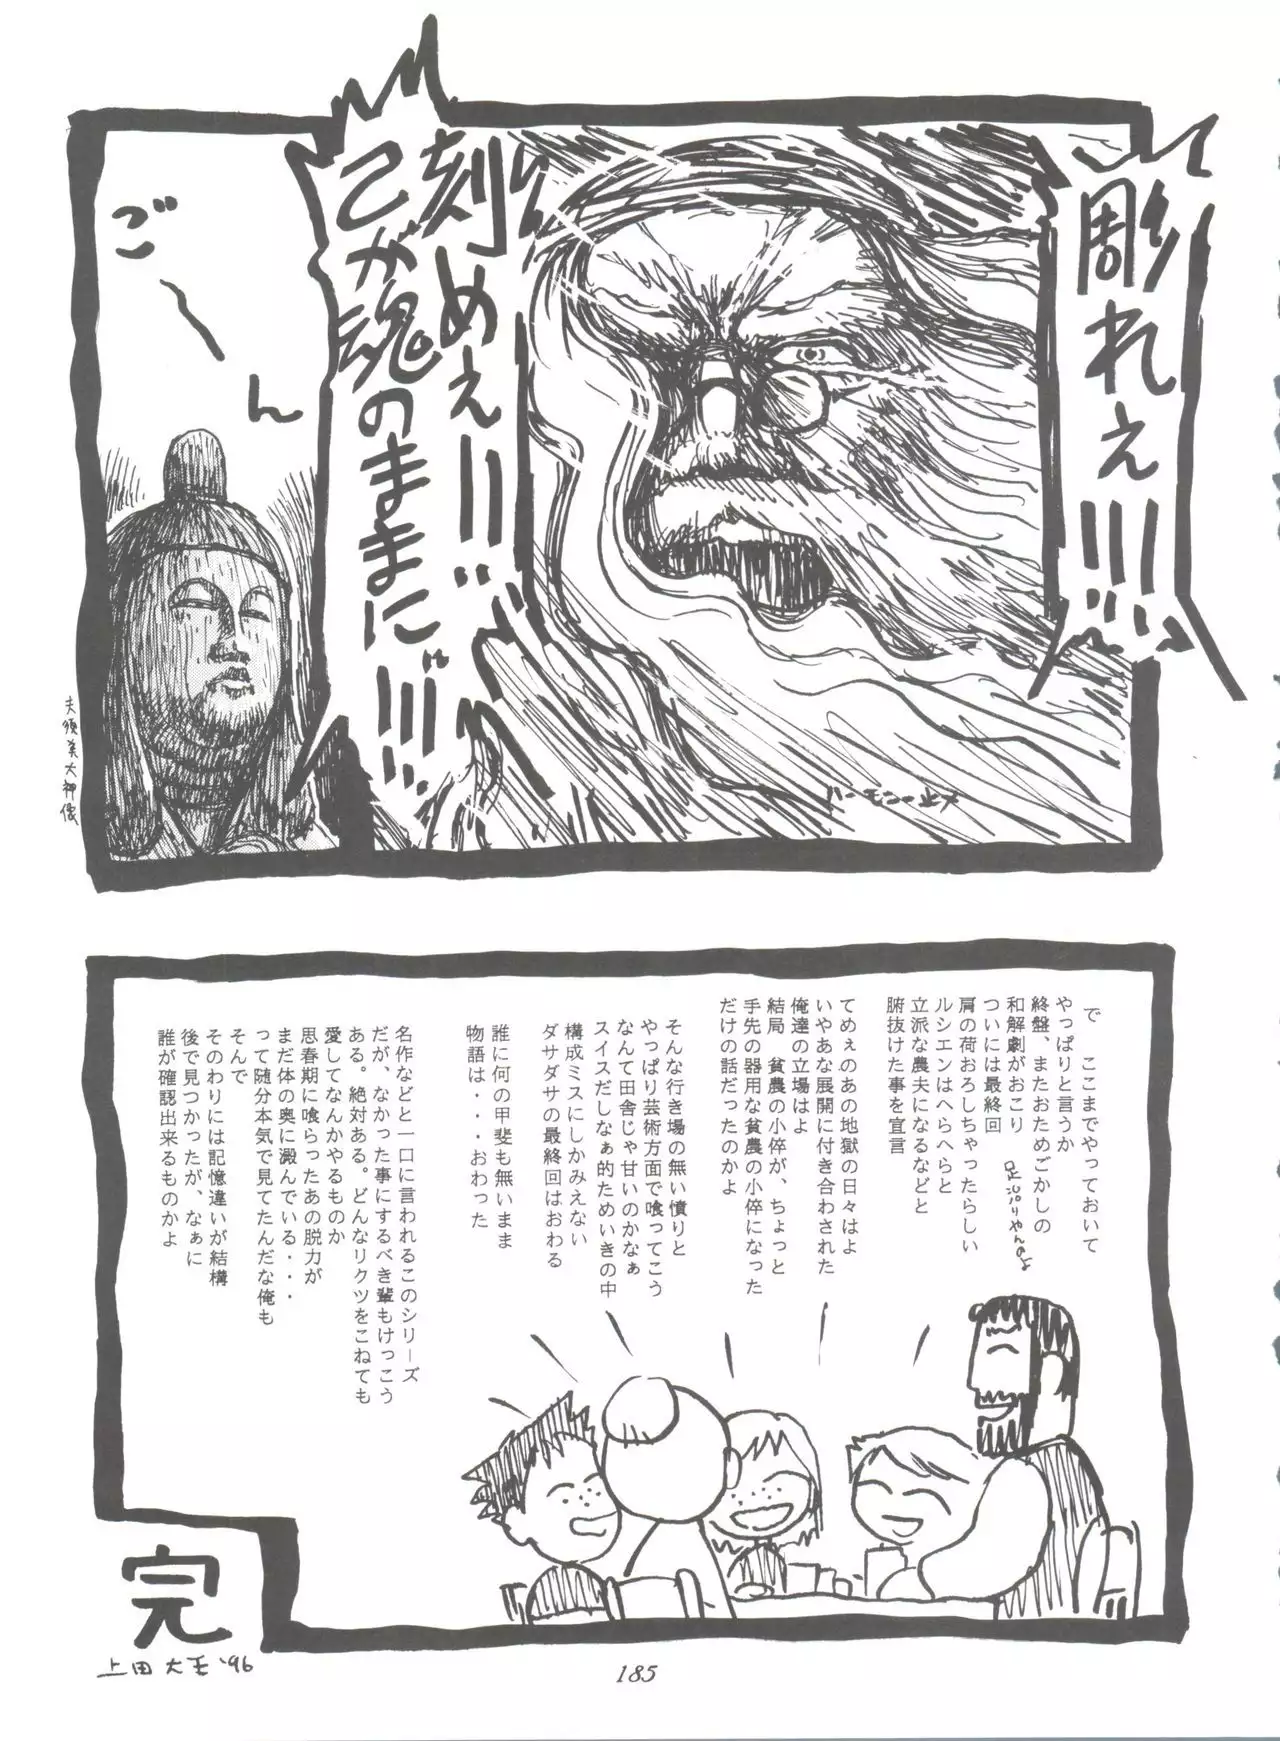 彫れぇ!!!
刻めぇ!!
己が魂のままに!!!
ご〜ん
夫須美大神像
ハーモニー止メ
で　ここまでやっておいて
やっぱりと言うか
終盤、またおためごかしの
和解劇がおこり
ついには最終回
肩の荷おろしちゃったらしい
ルシエンはへらへらと
立派な農夫になるなどと
腑抜けた事を宣言
てめぇのあの地獄の日々はよ
いやあな展開に付き合わされた
俺達の立場はよ
結局　貧農の小倅が、ちょっと
手先の器用な貧農の小倅になった
だけの話だったのかよ
そんな行き場の無い憤りと
やっぱり芸術方面で喰ってこう
なんて田舎じゃ甘いのかなぁ
スイスだしなぁ的ためいきの中
構成ミスにしかみえない
ダサダサの最終回はおわる
誰に何の甲斐も無いまま
物語は・・・おわった
名作などと一口に言われるこのシリーズ
だが、なかった事にするべき輩もけっこう
ある。絶対ある。どんなリクツをこねても
愛してなんかやるものか
思春期に喰らったあの脱力が
まだ体の奥に澱んでいる・・・
って随分本気で見てたんだな俺も
そんで
そのわりには記憶違いが結構
後で見つかったが、なぁに
誰が確認出来るものかよ
完
上田大王'96
185